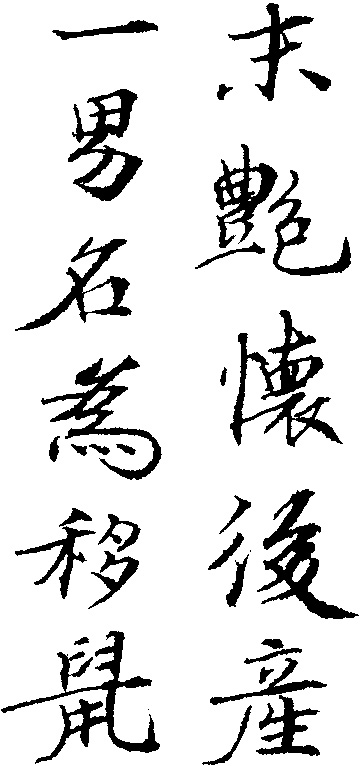 末艷懷後産
一男名為移鼠